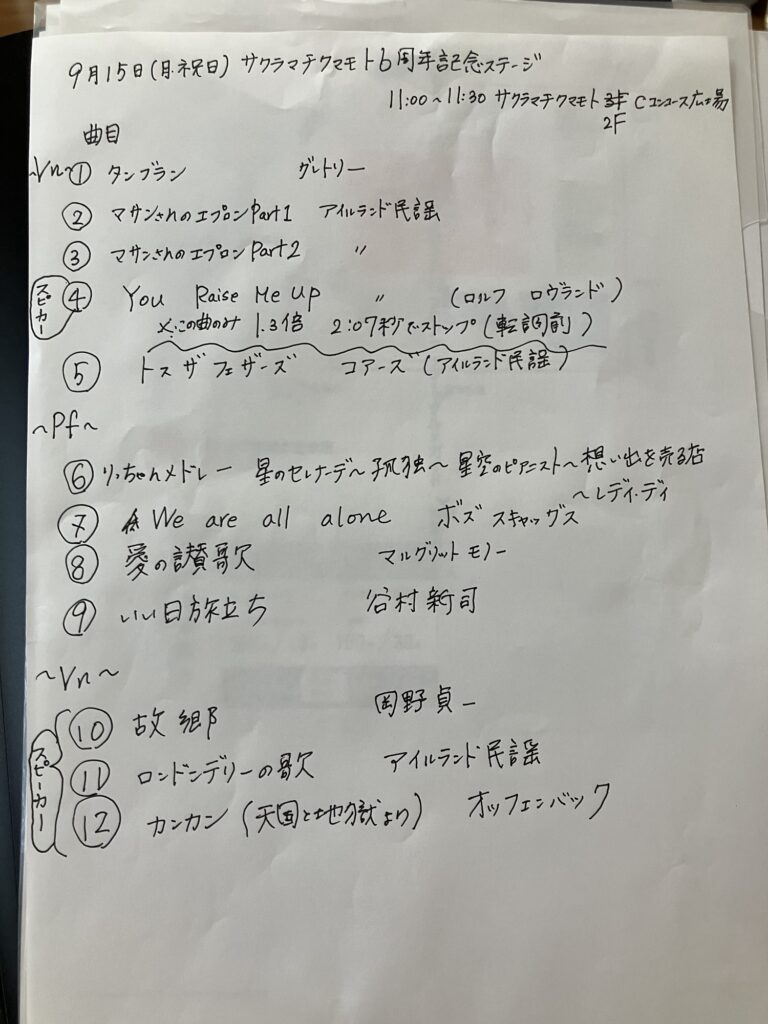 9月15日(月・祝日) サクラマチクマモト6周年記念ステージ
11:00～11:30 サクラマチクマモト Cコンコース広場
2F
曲目
～Vn～ ① タンブラン グレトリー
② マサンさんのエプロンPart1 アイルランド民謡
③ マサンさんのエプロンPart2 〃
スピーカー ④ You Raise Me Up 〃 (ロルフ ロヴランド)
※この曲のみ 1.3倍 2:07秒でストップ(転調前)
⑤ トス ザ フェザーズ コアーズ(アイルランド民謡)
～Pf～
⑥ りっちゃんメドレー 星のセレナーデ～孤独～星空のピアニスト～想い出を売る店
～レディ・ディ
⑦ We are all alone ボズ スキャッグス
⑧ 愛の讃歌 マルグリット モノー
⑨ いい日旅立ち 谷村新司
～Vn～
⑩ 故郷 岡野貞一
スピーカー ⑪ ロンドンデリーの歌 アイルランド民謡
⑫ カンカン(天国と地獄より) オッフェンバック